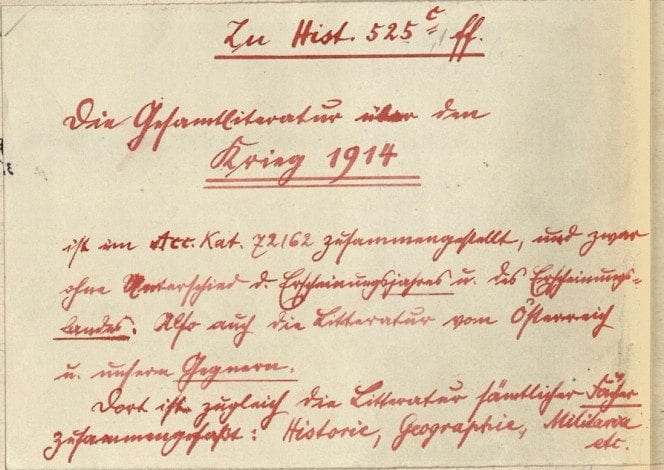 Zu Hist. 525 c ff.
Die Gesamtliteratur über den
Krieg 1914
ist im Acc. Kat. 72162 zusammengestellt, und zwar
ohne Unterschied d. Erscheinungsjahres u. des Erscheinungs-
landes. Also auch die Litteratur von Österreich
u. unsern Gegnern.
Dort ist zugleich die Litteratur sämtlicher Fächer
zusammengefaßt: Historie, Geographie, Militaria
etc.